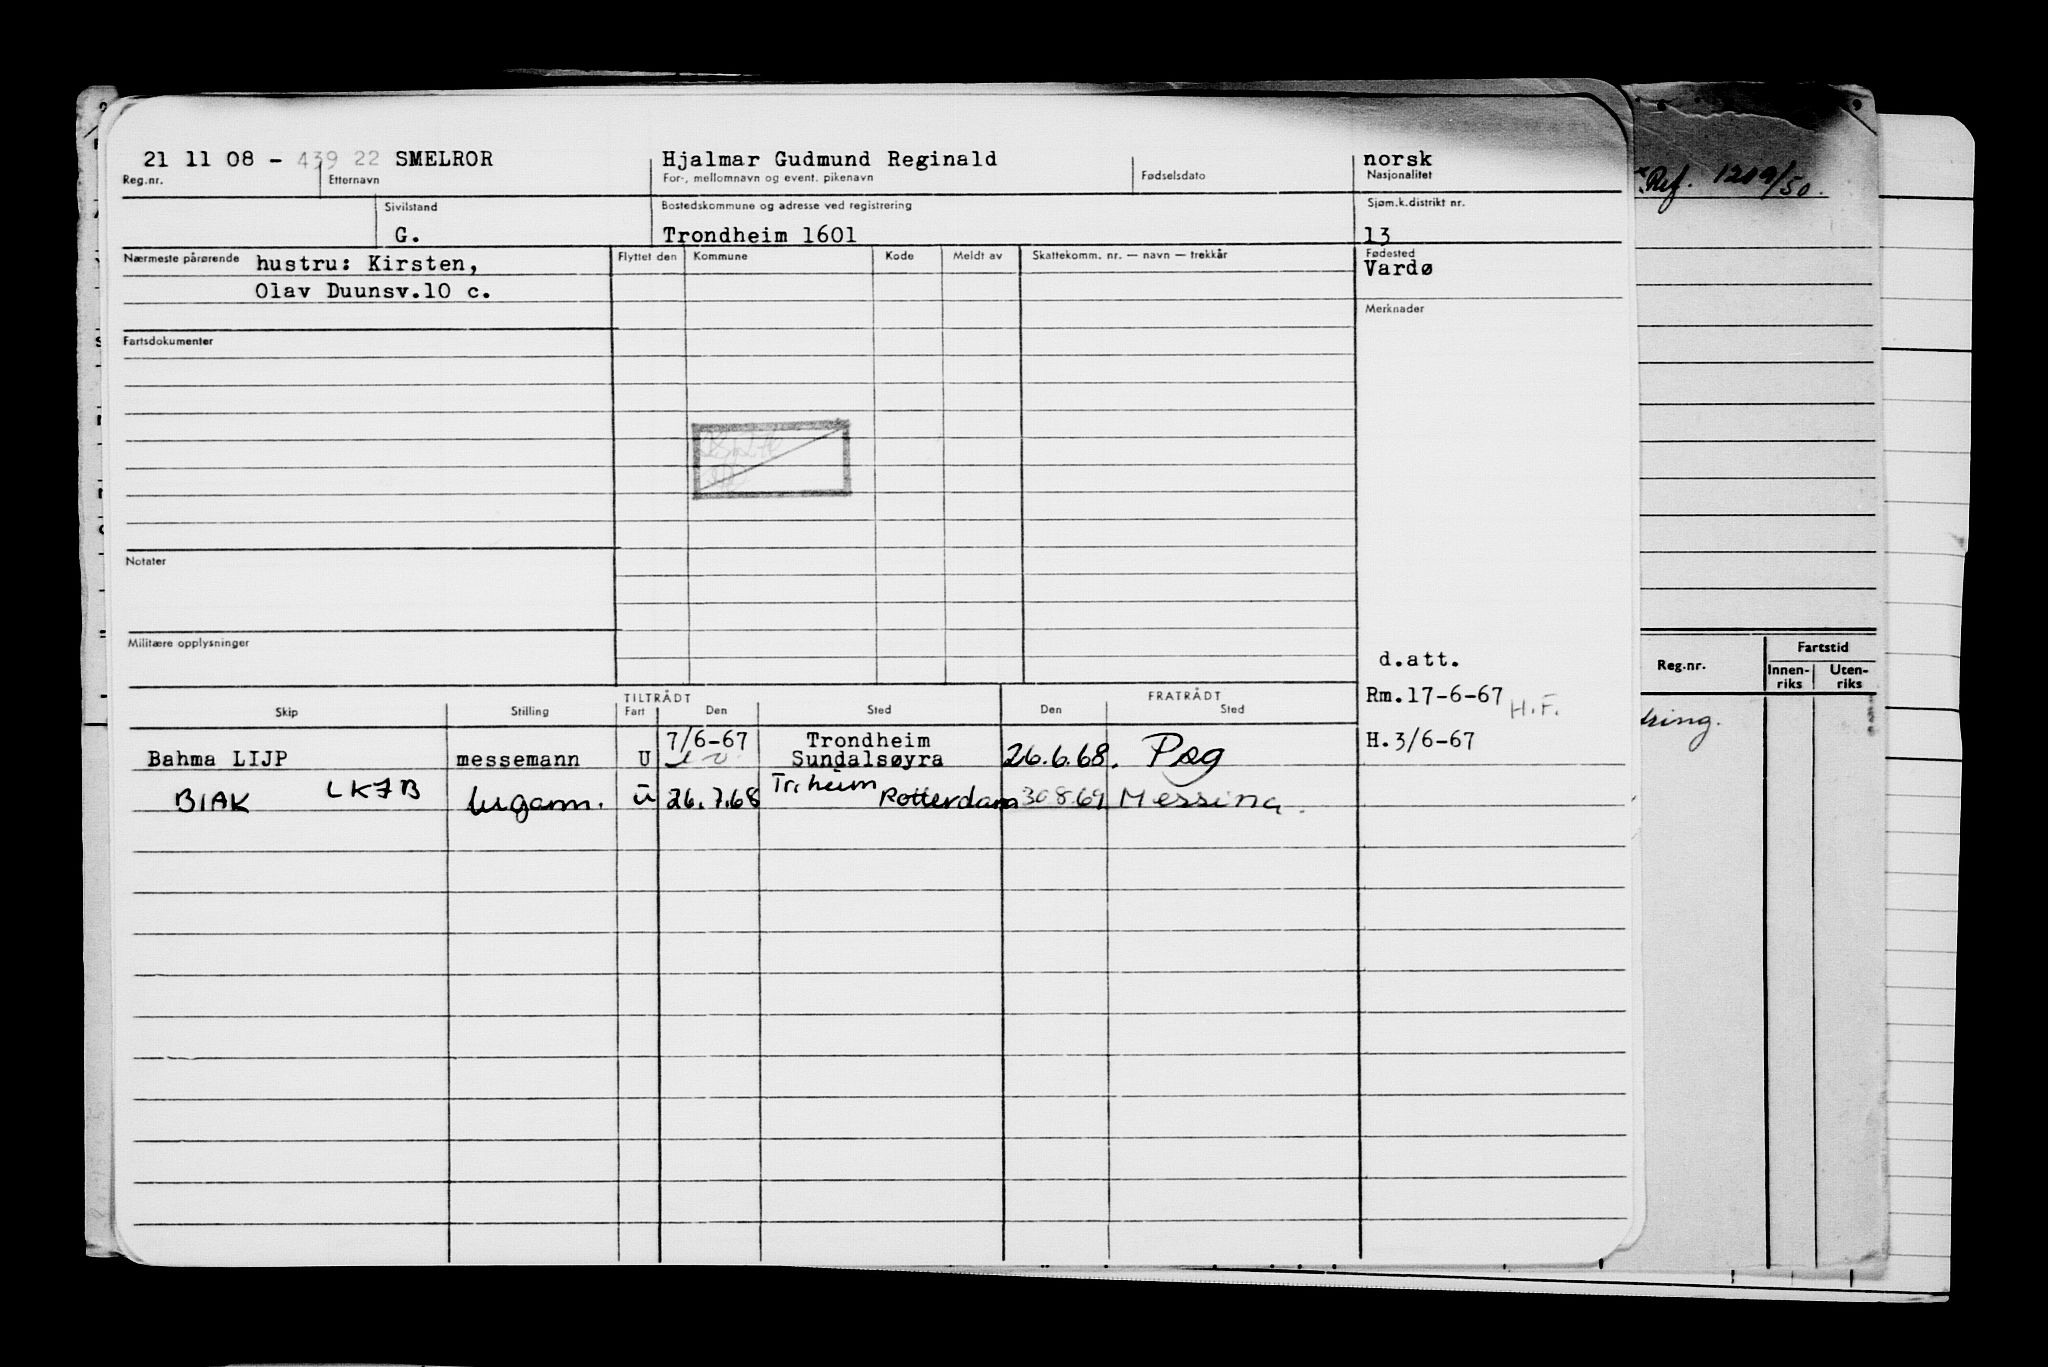 21 11 08 - 439 22 SMELROR Hjalmar Gudmund Reginald norsk
Reg.nr. Etternavn For-, mellomnavn og event. pikenavn Fødselsdato Nasjonalitet
Ref. 1219/50.
Sivilstand Bostedskommune og adresse ved registrering Sjøm.k.distrikt nr.
G. Trondheim 1601 13
Nærmeste pårørende hustru: Kirsten, Flyttet den Kommune Kode Meldt av Skattekomm. nr. — navn — trekkår Fødested
Vardø
Olav Duunsv.10 c.
Merknader
Fartsdokumenter
Notater
Militære opplysninger
d.att.
Reg.nr. Fartstid
Innen-riks Uten-riks
TILTRÅDT FRATRÅDT Rm.17-6-67 H.F.
Skip Stilling Fart Den Sted Den Sted
7/6-67 Trondheim H.3/6-67
Bahma LIJP messemann U Sundalsøyra 26.6.68.
BIAK LKJB lugarm. U 26.7.68 Tr.heim Rotterdam 30.8.69 Messina.